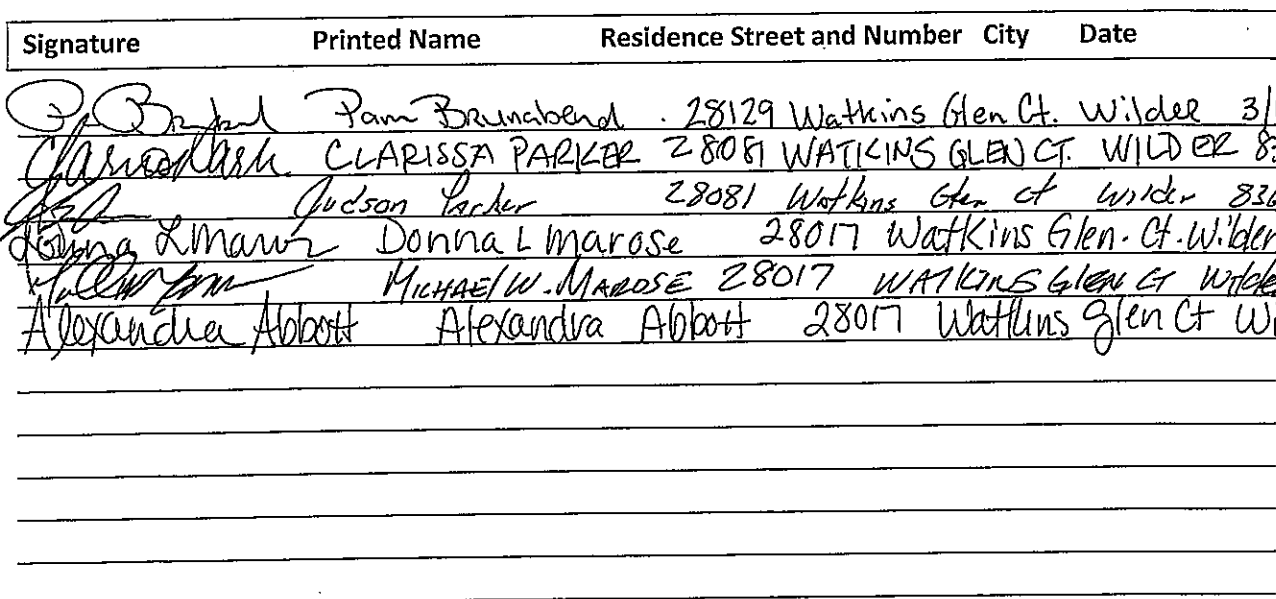 Signature Printed Name Residence Street and Number City Date
Pam Brunabend 28129 Watkins Glen Ct. Wilder 3/
CLARISSA PARKER 28081 WATKINS GLEN CT. WILDER 83
Judson Parker 28081 Watkins Glen ct Wilder 836
Donna L Marose Donna L Marose 28017 Watkins Glen. Ct. Wilder
MICHAEl W. MAROSE 28017 WATKINS GlEN CT Wilde
Alexandra Abbott Alexandra Abbott 28017 Watkins Glen Ct Wi